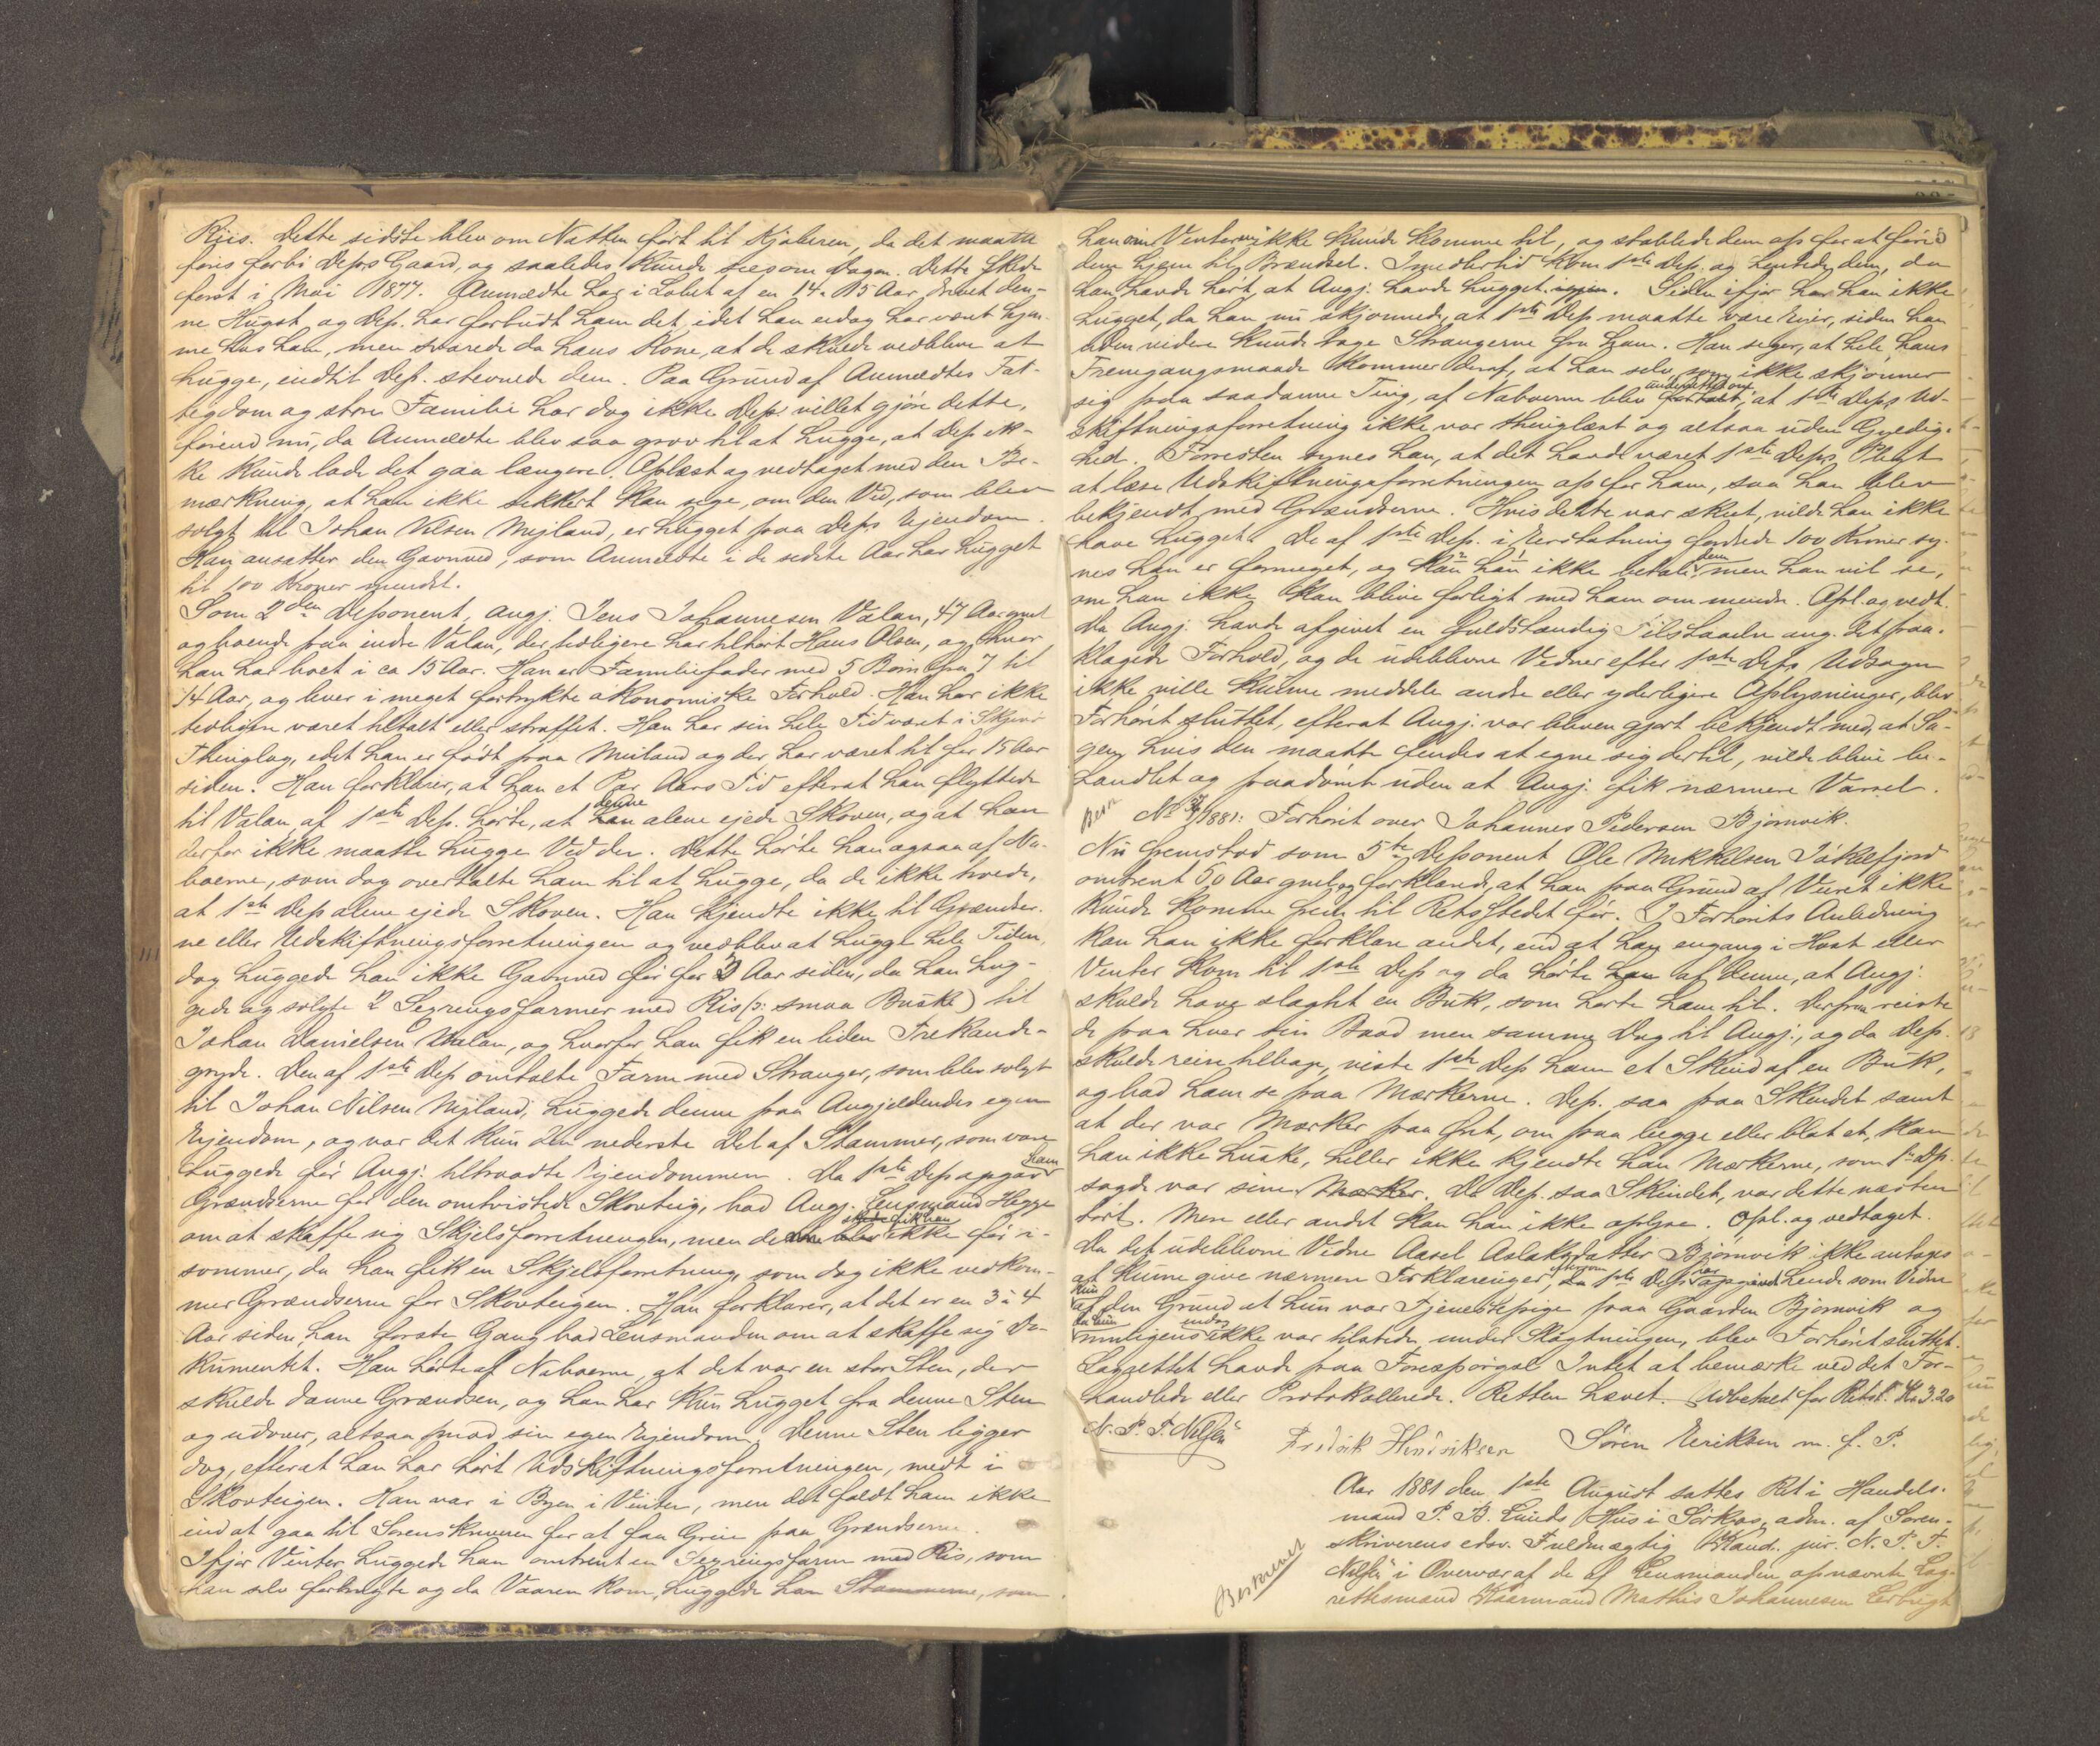 Riis. Dette sidste blev om Natten ført til Kjøberen, da det maatte
føres forbi Deps Gaard, og saaledes kunde sees om Dagen. Dette skede
først i Mai 1877. Anmældte har i Løbet af en 14 a 15 Aar drevet den-
ne Hugst, og Dep. har forbudt ham det, idet han endog har været hjem-
me hos ham, men svarede da hans Kone, at de skulde vedblive at
hugge, indtil Dep. stevnede dem. Paa Grund af Anmældtes Fat-
tigdom og store Familie har dog ikke Dep. villet gjøre dette,
førend nu, da Anmældte blev saa grov til at hugge, at Dep ik-
ke kunde lade det gaa længere. Oplæst og vedtaget med den Be-
mærkning, at han ikke sikkert kan sige, om den Ved, som blev
solgt til Johan Nilsen Mejland, er hugget paa Deps Ejendom.
Han ansætter den Gavnved, som Anmældte i de sidste Aar har hugget
til 100 Kroner mindst.
Som 2den Deponent, angj. Jens Johannesen Valan, 47 Aar gml
og boende paa indre Valan, der tidligere har tilhørt Hans Olsen, og hvor
han har boet i ca 15 Aar. Han er Familiefader med 5 Børn fra 7 til
14 Aar, og lever i meget fortrykte økonomiske Forhold. Han har ikke
tidligere været tiltalt eller straffet. Han har sin hele Tid været i Skjervø
Thinglag, idet han er født paa Meiland og der har været til for 15 Aar
siden. Han forklarer, at han et Par Aars Tid efterat han flyttede
til Valan af 1ste Dep. hørte, at denne alene ejede Skoven, og at han
derfor ikke maatte hugge Ved der. Dette hørte han ogsaa af Na-
boerne, som dog overtalte ham til at hugge, da de ikke troede,
at 1ste Dep alene ejede Skoven. Han kjendte ikke til Grændser-
ne eller Udskiftningsforretningen og vedblev at hugge hele Tiden,
dog huggede han ikke Gavnved før for 3 Aar siden, da han hug-
gede og solgte 2 Segringsfarmer med Ris (ɔ: smaa Buske) til
Johan Danielsen Valan, og hvorfor han fik en liden Trekande-
gryde. Den af 1ste Dep omtalte Farm med Stranger, som blev solgt
til Johan Nilsen Mejland, huggede denne paa Angjældendes egen
Ejendom, og var det kun den nederste Del af Stammer, som vare
huggede før Angj. tiltraadte Ejendommen. Da 1ste Dep opgav ham
Grændserne for den omtvistede Skovteig, bad Angj. Lensmand Hegge
om at skaffe sig Skjelsforretningen, men denne fik han ikke før i-
sommer, da han fik en Skjelsforretning, som dog ikke vedkom-
mer Grændserne for Skovteigen. Han forklarer, at det er en 3 à 4
Aar siden, han første Gang bad Lensmanden om at skaffe sig Do-
kumentet. Han hørte af Naboerne, at det var en stor Sten, der
skulde danne Grændsen, og han har kun hugget fra denne Sten
og udover, altsaa mod sin egen Ejendom. Denne Sten ligger
dog, efterat han har hørt Udskiftningsforretningen, midt i
Skovteigen. Han var i Byen i Vinter, men det faldt ham ikke
ind at gaa til Sorenskriveren for at faa Greie paa Grændserne.
Ifjor Vinter huggede han omtrent en Segringsfarm med Ris, som
han selv forbrugte og da Vaaren kom, huggede han Stammerne, som
han om Vinteren ikke kunde komme til, og stablede dem op for at føre
dem hjem til Brændsel. Imidlertid kom 1ste Dep. og hentede dem, da
han havde hørt, at Angj. havde hugget igjen. Siden ifjor har han ikke
hugget, da han nu skjønnede, at 1ste Dep maatte være Eier, siden han
uden videre kunde tage Strangerne fra ham. Han siger, at hele hans
Fremgangsmaade kommer deraf, at han selv, som ikke skjønner
sig paa saadanne Ting, af Naboerne blev underrettet om, at 1ste Deps Ud-
skiftningsforretning ikke var thinglæst og altsaa uden Gyldig-
hed. Forresten synes han, at det havde været 1ste Deps Pligt
at læse Udskiftningsforretningen op for ham, saa han blev
bekjendt med Grændserne. Hvis dette var skeet, vilde han ikke
have hugget. De af 1ste Dep. i Erstatning fordrede 100 Kroner sy-
nes han er formeget, og kan han ikke betale dem men han vil se,
om han ikke kan blive forligt med ham om mindre. Opl. og vedt.
Da Angj. havde afgivet en fuldstændig Tilstaaelse ang. det paa-
klagede Forhold, og de udeblevne Vidner efter 1ste Deps Udsagn
ikke ville kunne meddele andre eller yderligere Oplysninger, blev
Forhøret sluttet, efterat Angj. var bleven gjort bekjendt med, at Sa-
gen, hvis den maatte findes at egne sig dertil, vilde blive be-
handlet og paadømt uden at Angj. fik nærmere Varsel.
No 1881: Forhørit over Johannes Pedersen Bjørnvik.
Nu fremstod som 5te Deponent Ole Mikkelsen Jøkelfjord
omtrent 50 Aar gml, og forklarede, at han paa Grund af Veiret ikke
kunde komme frem til Retsstedet før. I Forhørets Anledning
kan han ikke forklare andet, end at han engang i Høst eller
Vinter kom til 1ste Dep og da hørte han af denne, at Angj.
skulde have slagtet en Buk, som hørte ham til. Derfra reiste
de paa hver sin Baad men samme Dag til Angj., og da Dep.
skulde reise tilbage, viste 1ste Dep ham et Skind af en Buk,
og bad ham se paa Mærkerne. Dep. saa paa Skindet samt
at der var Mærker paa Øret, om paa begge eller blot et, kan
han ikke huske, heller ikke kjendte han Mærkerne, som 1ste Dp.
sagde var sine Mærker. Da Dep. saa Skindet, var dette næsten
tørt. Mere eller andet kan han ikke oplyse. Opl. og vedtaget.
Da det udeblevne Vidne Aasel Aslaksdatter Bjørnvik ikke antages
at kunne give nærmere Forklaringer, eftersom 1ste Dep. har opgivet hende som Vidne
kun af den Grund at hun var Tjenestepige paa Gaarden Bjørnvik og
da hun muligens ikke var tilstede under Slagtningen, blev Forhøret sluttet.
Lagrettet havde paa Forespørgsel Intet at bemærke ved det For-
handlede eller Protokollerede. Retten hævet. Udbetalt for Retsl. Kr 3.20
N. P. T. Nilssen
Fredrik Hendriksen Søren Eriksen m. f. P.
Aar 1881 den 1ste August sattes Ret i Handels-
mand P. B. Lunds Hus i Sørkjos, adm. af Soren-
skriverens edsv. Fuldmægtig Kand. jur. N. P. T.
Nilssen i Overvær af de af Lensmanden opnævnte Lag-
rettesmænd Kaarmand Mathis Johannesen
Beskrevet